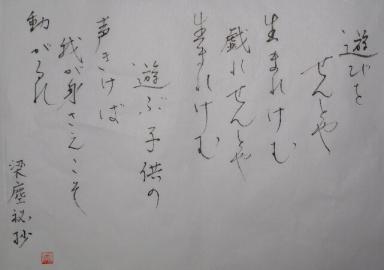 遊びを
せんとや
生まれけむ
戯れせんとや
生まれけむ
遊ぶ子供の
声きけば
我が身さえこそ
動がるれ
梁塵秘抄